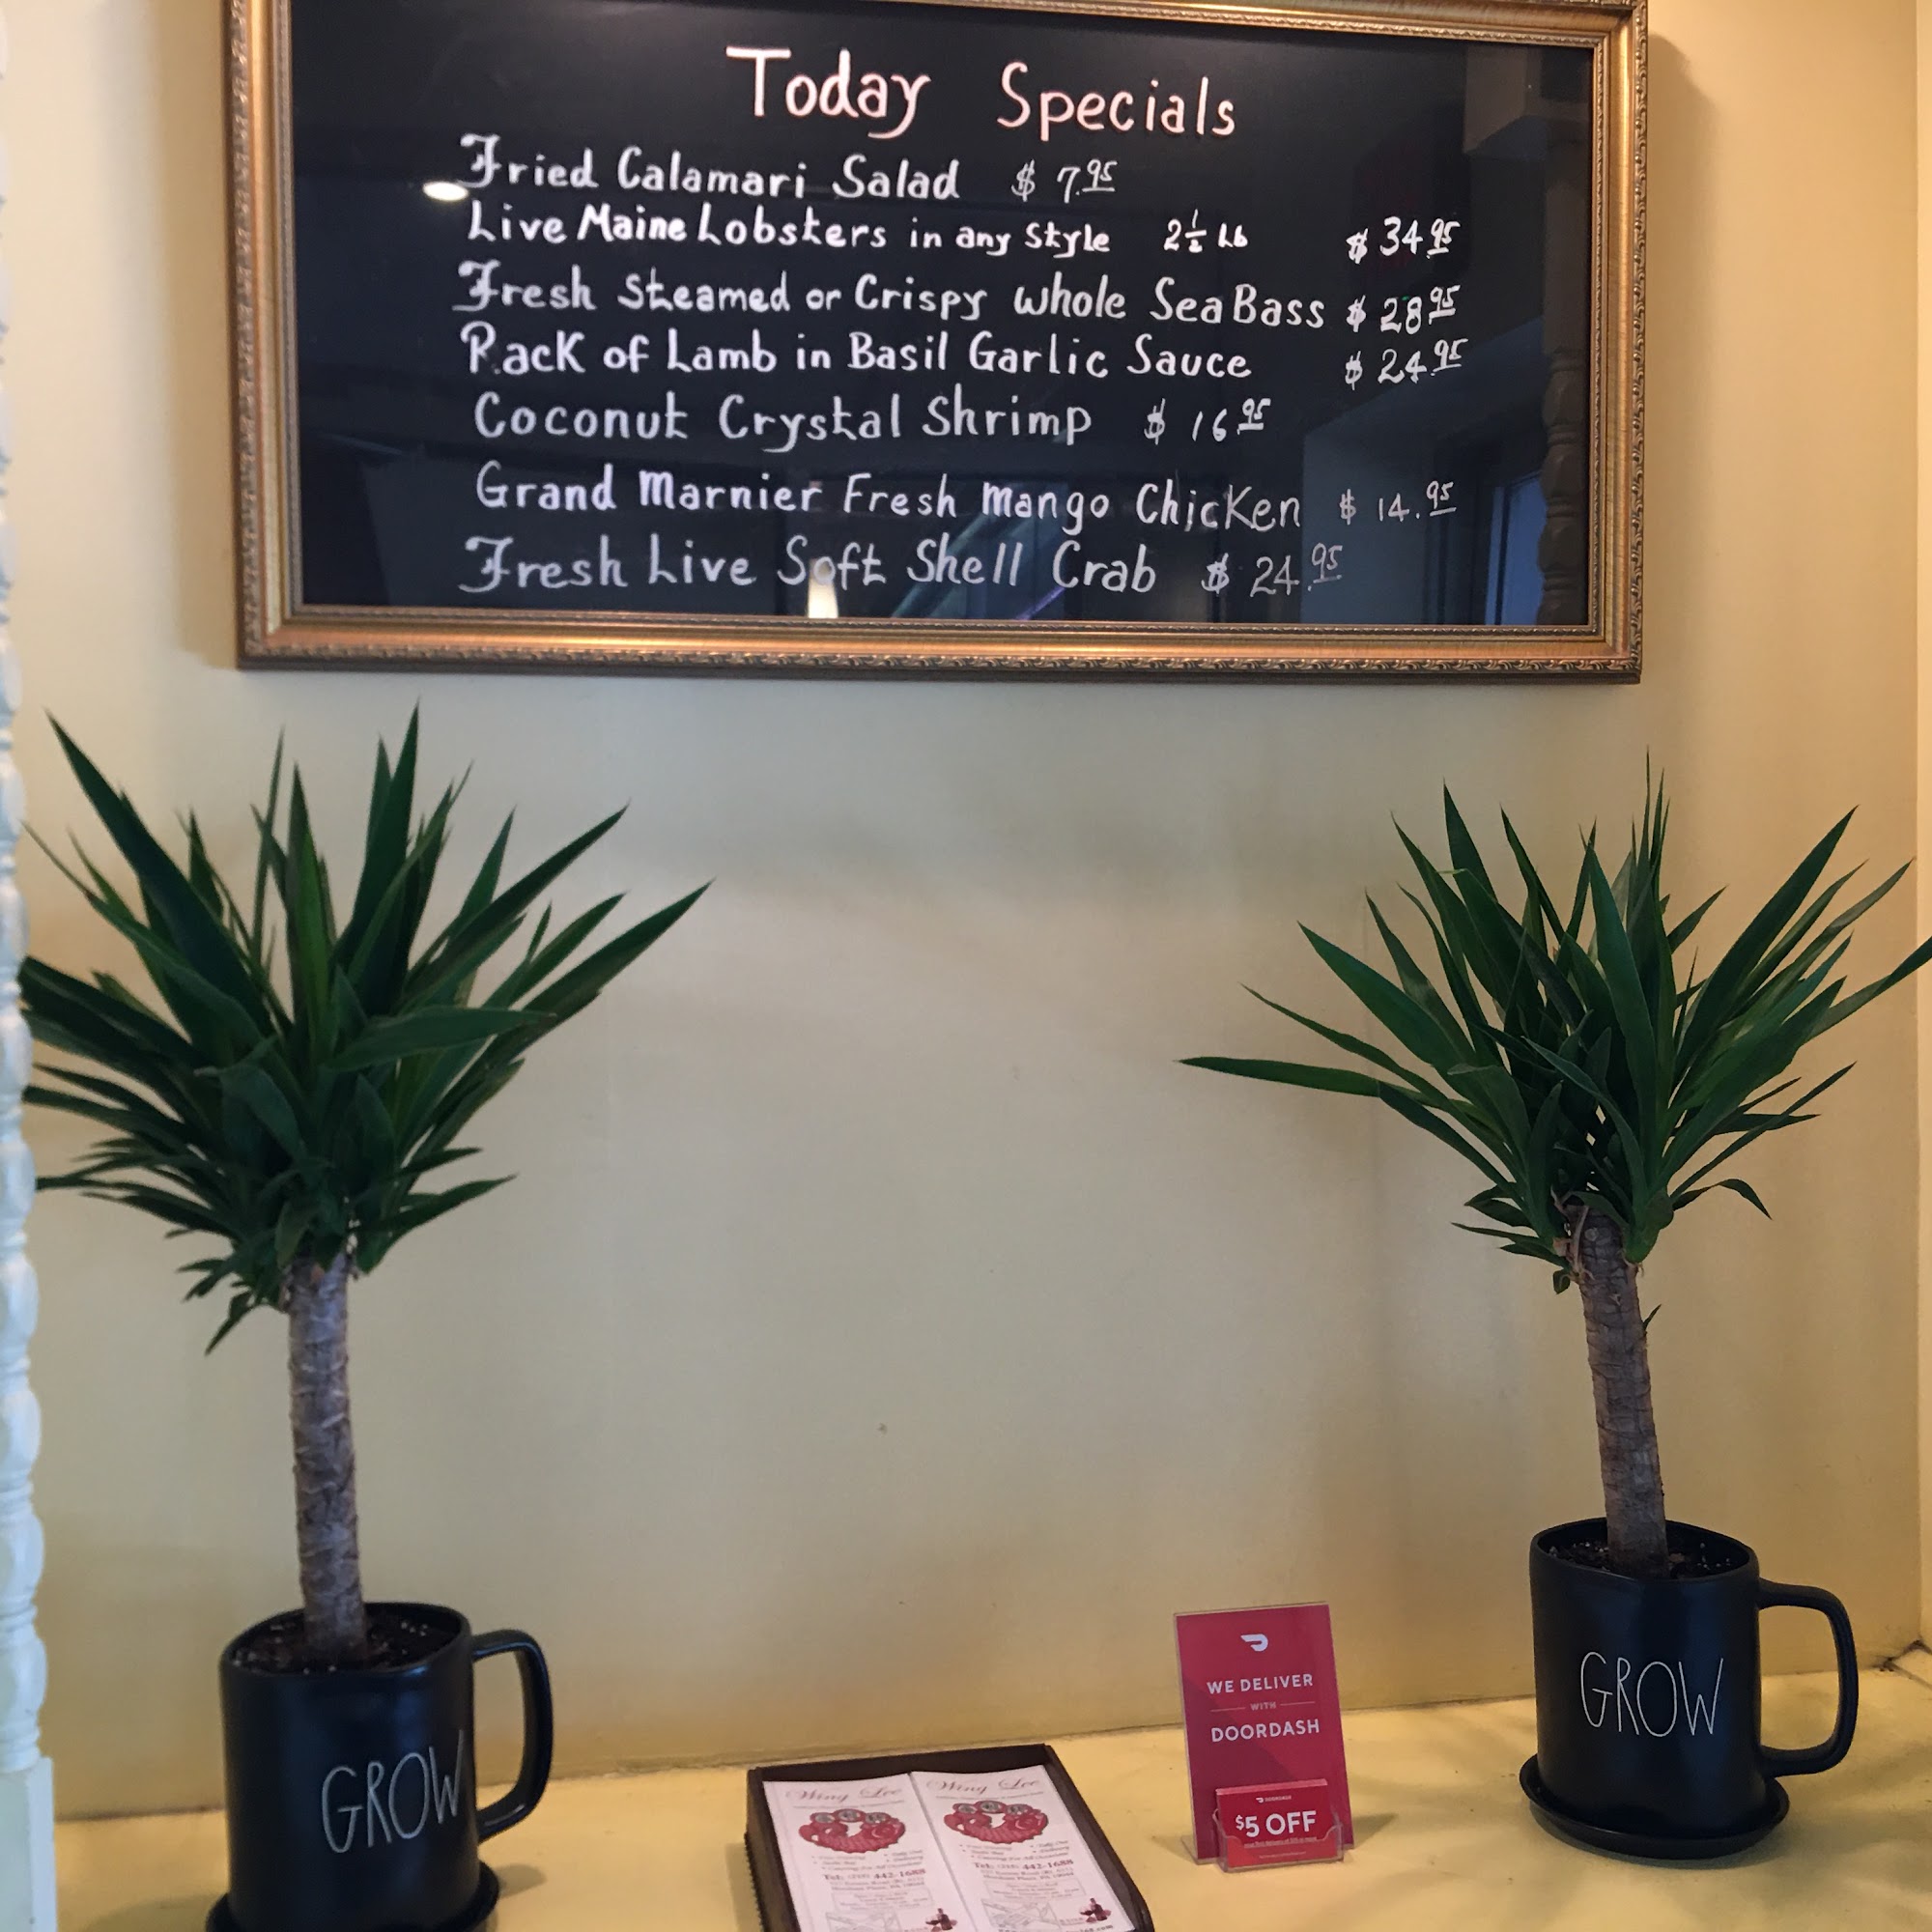 Today Specials
Fried Calamari Salad $ 7.95
Live Maine Lobsters in any Style 2 1/2 Lb $ 34.95
Fresh Steamed or Crispy whole Sea Bass $ 28.95
Rack of Lamb in Basil Garlic Sauce $ 24.95
Coconut Crystal Shrimp $ 16.95
Grand Marnier Fresh Mango Chicken $ 14.95
Fresh Live Soft Shell Crab $ 24.95
GROW
GROW
WE DELIVER
WITH
DOORDASH
DOORDASH
$5 OFF
Wing Lee
442-1688
Wing Lee
442-1688